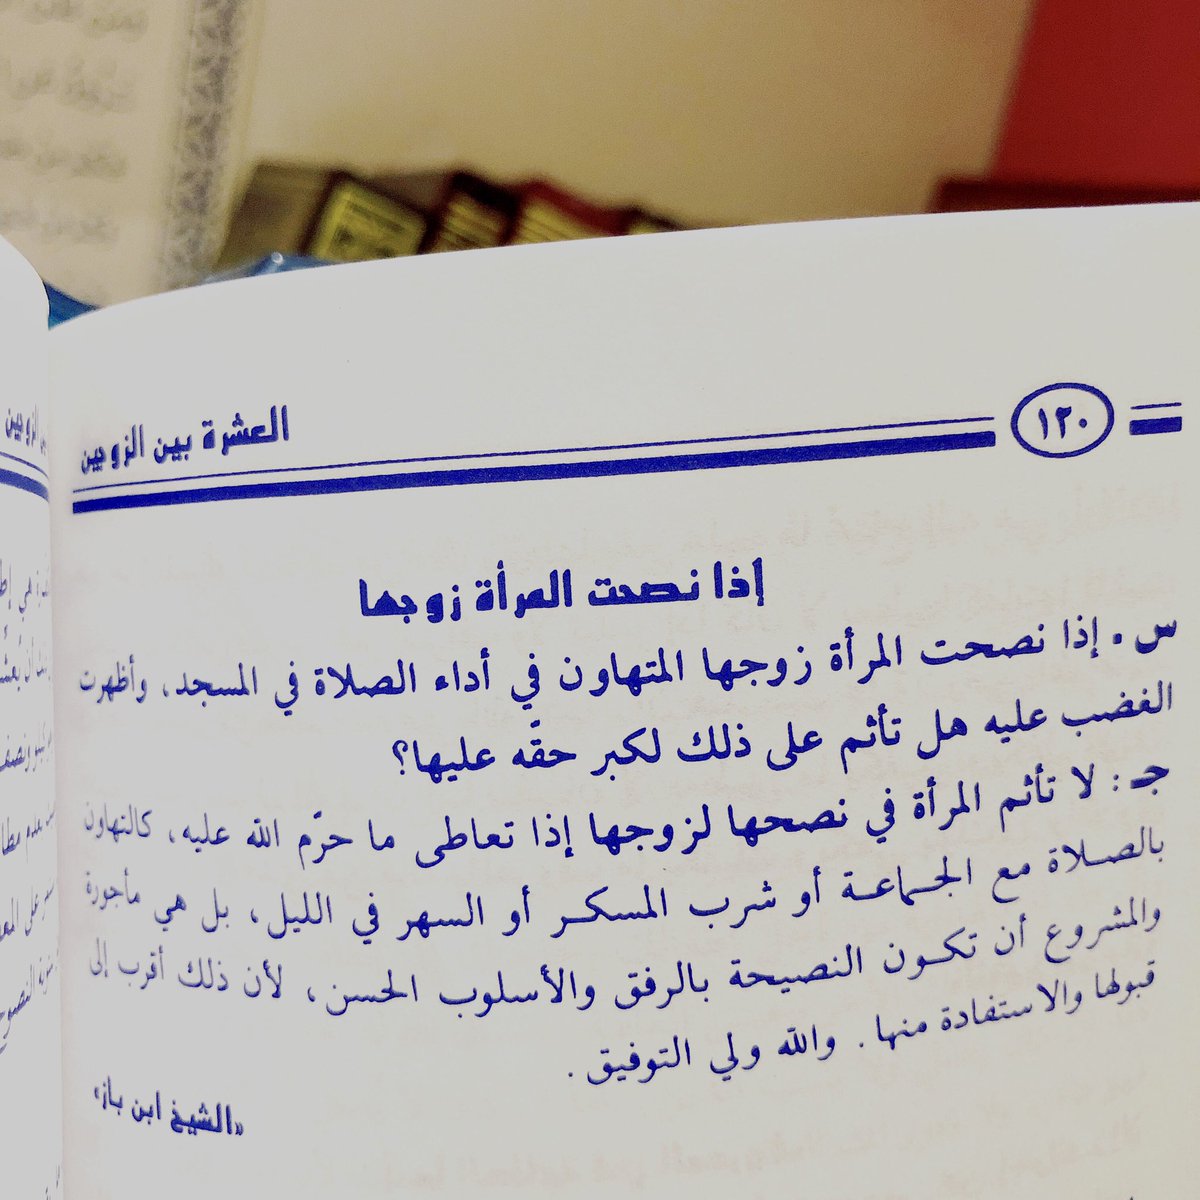 ١٢٠
العشرة بين الزوجين
إذا نصحت المرأة زوجها
س . إذا نصحت المرأة زوجها المتهاون في أداء الصلاة في المسجد، وأظهرت
الغضب عليه هل تأثم على ذلك لكبر حقّه عليها؟
جـ : لا تأثم المرأة في نصحها لزوجها إذا تعاطى ما حرّم الله عليه، كالتهاون
بالصلاة مع الجماعة أو شرب المسكر أو السهر في الليل، بل هي مأجورة
والمشروع أن تكون النصيحة بالرفق والأسلوب الحسن، لأن ذلك أقرب إلى
قبولها والاستفادة منها. والله ولي التوفيق.
«الشيخ ابن باز»